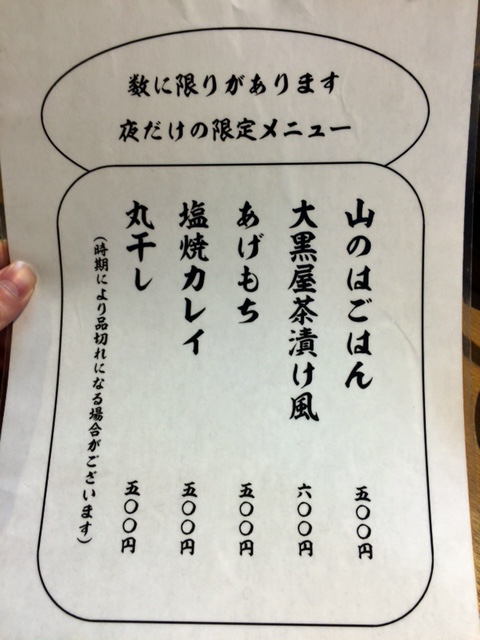 数に限りがあります
夜だけの限定メニュー
山のはごはん 五〇〇円
大黒屋茶漬け風 六〇〇円
あげもち 五〇〇円
塩焼カレイ 五〇〇円
丸干し 五〇〇円
(時期により品切れになる場合がございます)